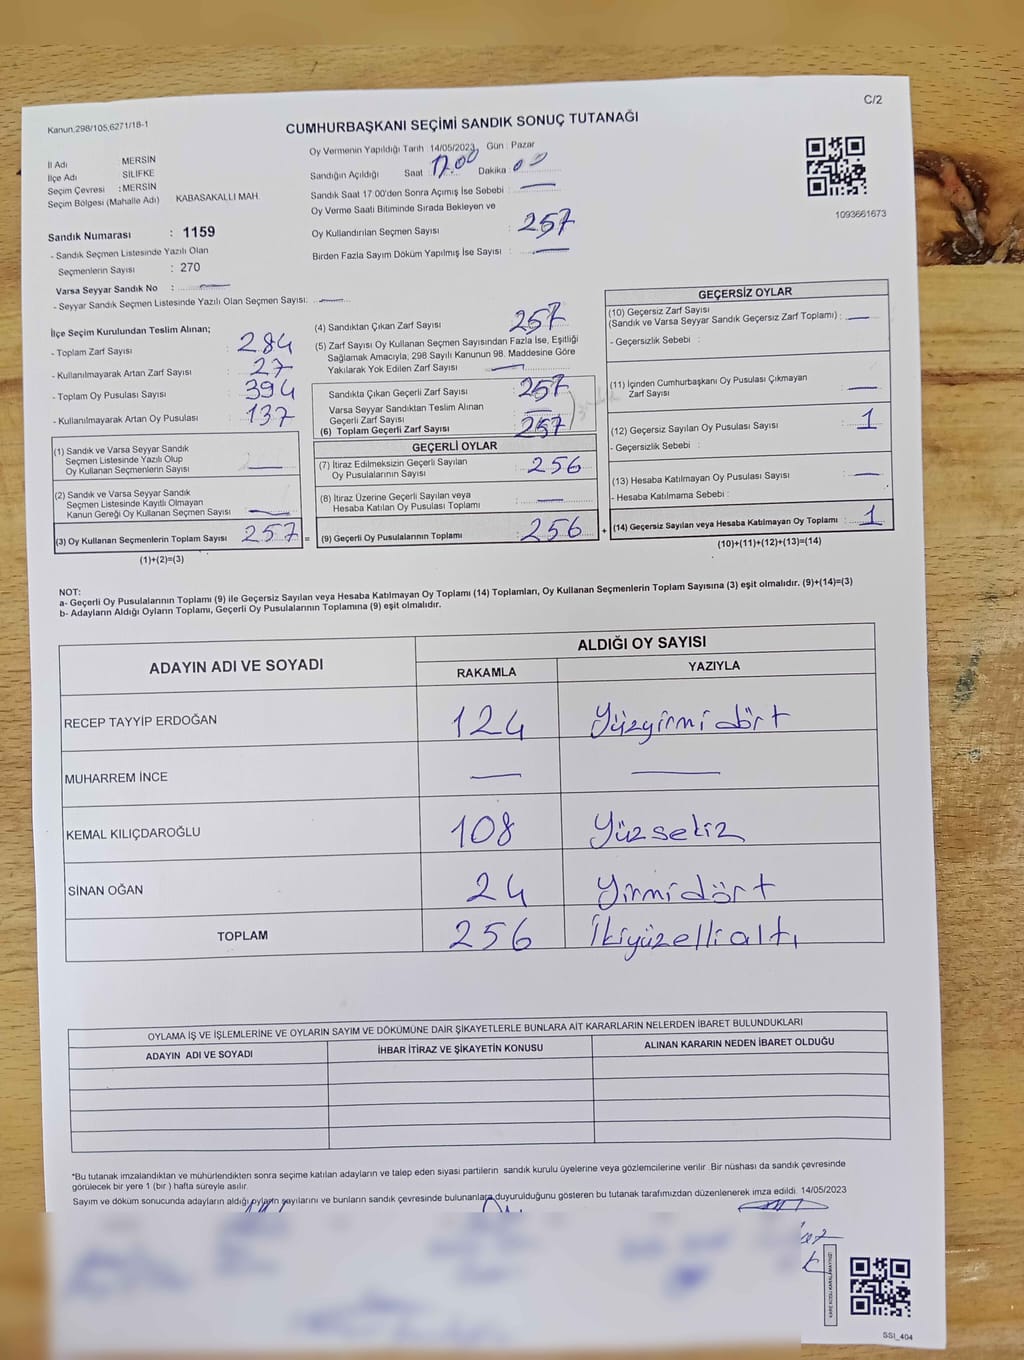 Kanun.298/105,6271/18-1
C/2
CUMHURBAŞKANI SEÇİMİ SANDIK SONUÇ TUTANAĞI
İl Adı MERSİN
İlçe Adı SİLİFKE
Seçim Çevresi : MERSİN
Seçim Bölgesi (Mahalle Adı) KABASAKALLI MAH.
Sandık Numarası : 1159
- Sandık Seçmen Listesinde Yazılı Olan
Seçmenlerin Sayısı : 270
Varsa Seyyar Sandık No :
- Seyyar Sandık Seçmen Listesinde Yazılı Olan Seçmen Sayısı:
Oy Vermenin Yapıldığı Tarih 14/05/2023 Gün : Pazar
Sandığın Açıldığı Saat 17.00 Dakika 00
Sandık Saat 17.00'den Sonra Açımış İse Sebebi
Oy Verme Saati Bitiminde Sırada Bekleyen ve
Oy Kullandırılan Seçmen Sayısı : 257
Birden Fazla Sayım Döküm Yapılmış İse Sayısı
1093661673
İlçe Seçim Kurulundan Teslim Alınan;
- Toplam Zarf Sayısı : 284
- Kullanılmayarak Artan Zarf Sayısı : 27
- Toplam Oy Pusulası Sayısı : 394
- Kullanılmayarak Artan Oy Pusulası : 137
(1) Sandık ve Varsa Seyyar Sandık
Seçmen Listesinde Yazılı Olup
Oy Kullanan Seçmenlerin Sayısı
(2) Sandık ve Varsa Seyyar Sandık
Seçmen Listesinde Kayıtlı Olmayan
Kanun Gereği Oy Kullanan Seçmen Sayısı
(3) Oy Kullanan Seçmenlerin Toplam Sayısı 257
(1)+(2)=(3)
(4) Sandıktan Çıkan Zarf Sayısı : 257
(5) Zarf Sayısı Oy Kullanan Seçmen Sayısından Fazla İse, Eşitliği
Sağlamak Amacıyla, 298 Sayılı Kanunun 98. Maddesine Göre
Yakılarak Yok Edilen Zarf Sayısı
Sandıkta Çıkan Geçerli Zarf Sayısı : 257
Varsa Seyyar Sandıktan Teslim Alınan
Geçerli Zarf Sayısı
(6) Toplam Geçerli Zarf Sayısı : 257
GEÇERLİ OYLAR
(7) İtiraz Edilmeksizin Geçerli Sayılan
Oy Pusulalarının Sayısı : 256
(8) İtiraz Üzerine Geçerli Sayılan veya
Hesaba Katılan Oy Pusulası Toplamı
= (9) Geçerli Oy Pusulalarının Toplamı : 256
GEÇERSİZ OYLAR
(10) Geçersiz Zarf Sayısı
(Sandık ve Varsa Seyyar Sandık Geçersiz Zarf Toplamı) :
- Geçersizlik Sebebi :
(11) İçinden Cumhurbaşkanı Oy Pusulası Çıkmayan
Zarf Sayısı
(12) Geçersiz Sayılan Oy Pusulası Sayısı : 1
- Geçersizlik Sebebi :
(13) Hesaba Katılmayan Oy Pusulası Sayısı
- Hesaba Katılmama Sebebi :
+ (14) Geçersiz Sayılan veya Hesaba Katılmayan Oy Toplamı : 1
(10)+(11)+(12)+(13)=(14)
NOT:
a- Geçerli Oy Pusulalarının Toplamı (9) ile Geçersiz Sayılan veya Hesaba Katılmayan Oy Toplamı (14) Toplamları, Oy Kullanan Seçmenlerin Toplam Sayısına (3) eşit olmalıdır. (9)+(14)=(3)
b- Adayların Aldığı Oyların Toplamı, Geçerli Oy Pusulalarının Toplamına (9) eşit olmalıdır.
ADAYIN ADI VE SOYADI
ALDIĞI OY SAYISI
RAKAMLA YAZIYLA
RECEP TAYYİP ERDOĞAN 124 Yüzyirmi dört
MUHARREM İNCE
KEMAL KILIÇDAROĞLU 108 Yüz sekiz
SİNAN OĞAN 24 Yirmi dört
TOPLAM 256 İkiyüzelli altı
OYLAMA İŞ VE İŞLEMLERİNE VE OYLARIN SAYIM VE DÖKÜMÜNE DAİR ŞİKAYETLERLE BUNLARA AİT KARARLARIN NELERDEN İBARET BULUNDUKLARI
ADAYIN ADI VE SOYADI İHBAR İTİRAZ VE ŞİKAYETİN KONUSU ALINAN KARARIN NEDEN İBARET OLDUĞU
*Bu tutanak imzalandıktan ve mühürlendikten sonra seçime katılan adayların ve talep eden siyasi partilerin sandık kurulu üyelerine veya gözlemcilerine verilir. Bir nüshası da sandık çevresinde
görülecek bir yere 1 (bir ) hafta süreyle asılır.
Sayım ve döküm sonucunda adayların aldığı oyların sayılarını ve bunların sandık çevresinde bulunanlara duyurulduğunu gösteren bu tutanak tarafımızdan düzenlenerek imza edildi. 14/05/2023
SSİ_404